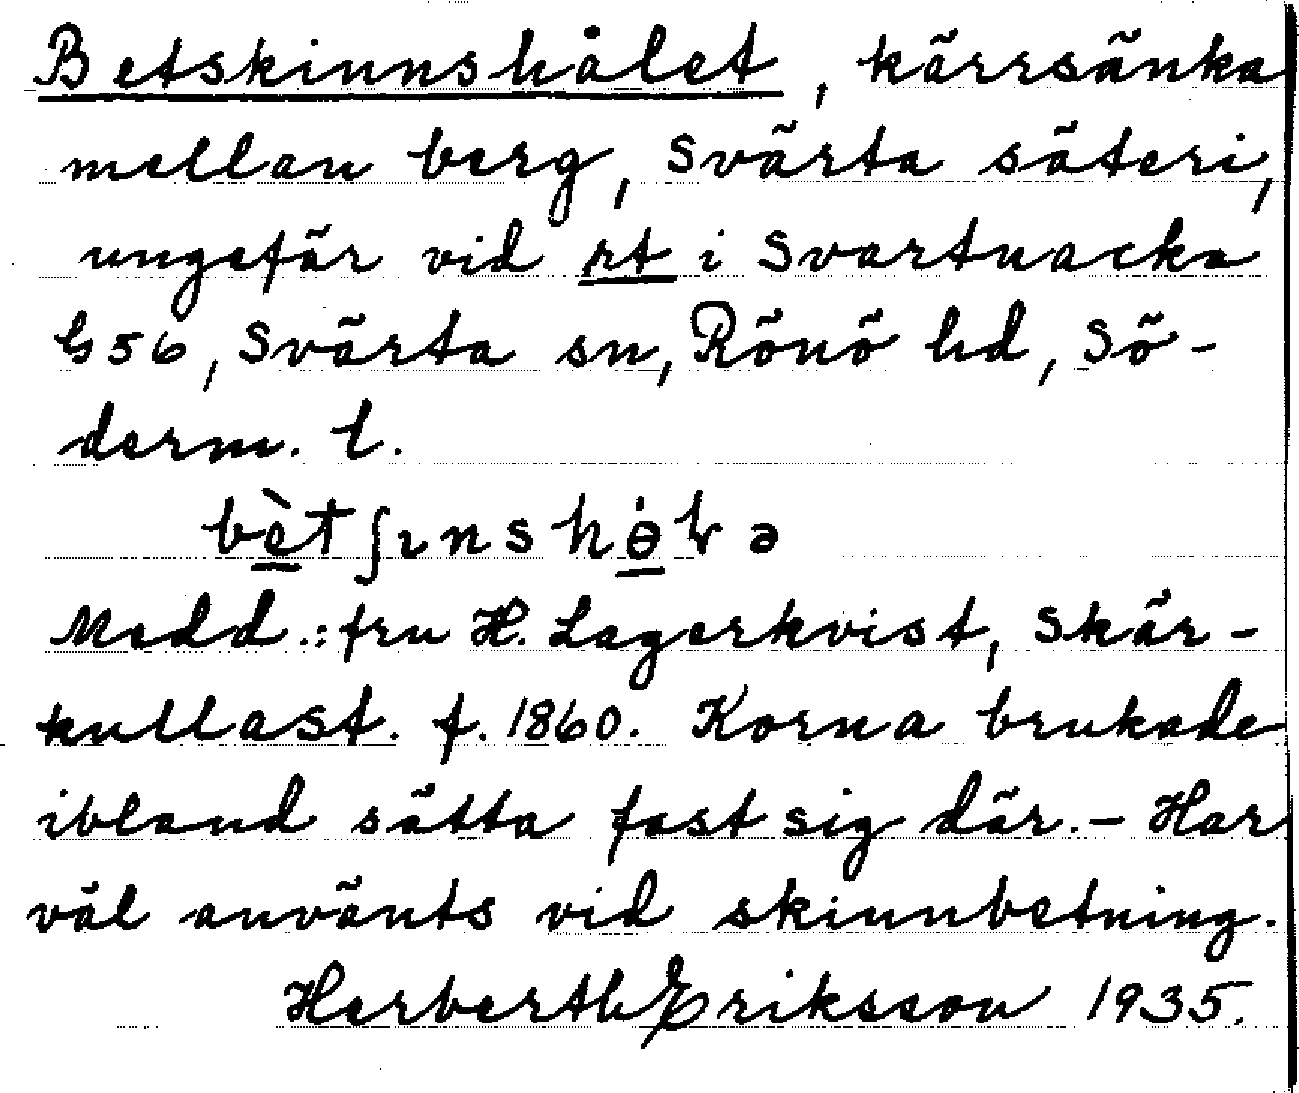 Betskinnshålet, kärrsänka
mellan berg, Svärta säteri,
ungefär vid rt i Svartnacka
G56, Svärta sn, Rönö hd, Sö-
derm. l.
Medd.: fru H. Lagerkvist, Skär-
kullast. f. 1860. Korna brukade
ibland sätta fast sig där. - Har
väl använts vid skinnbetning.
Herberth Eriksson 1935.